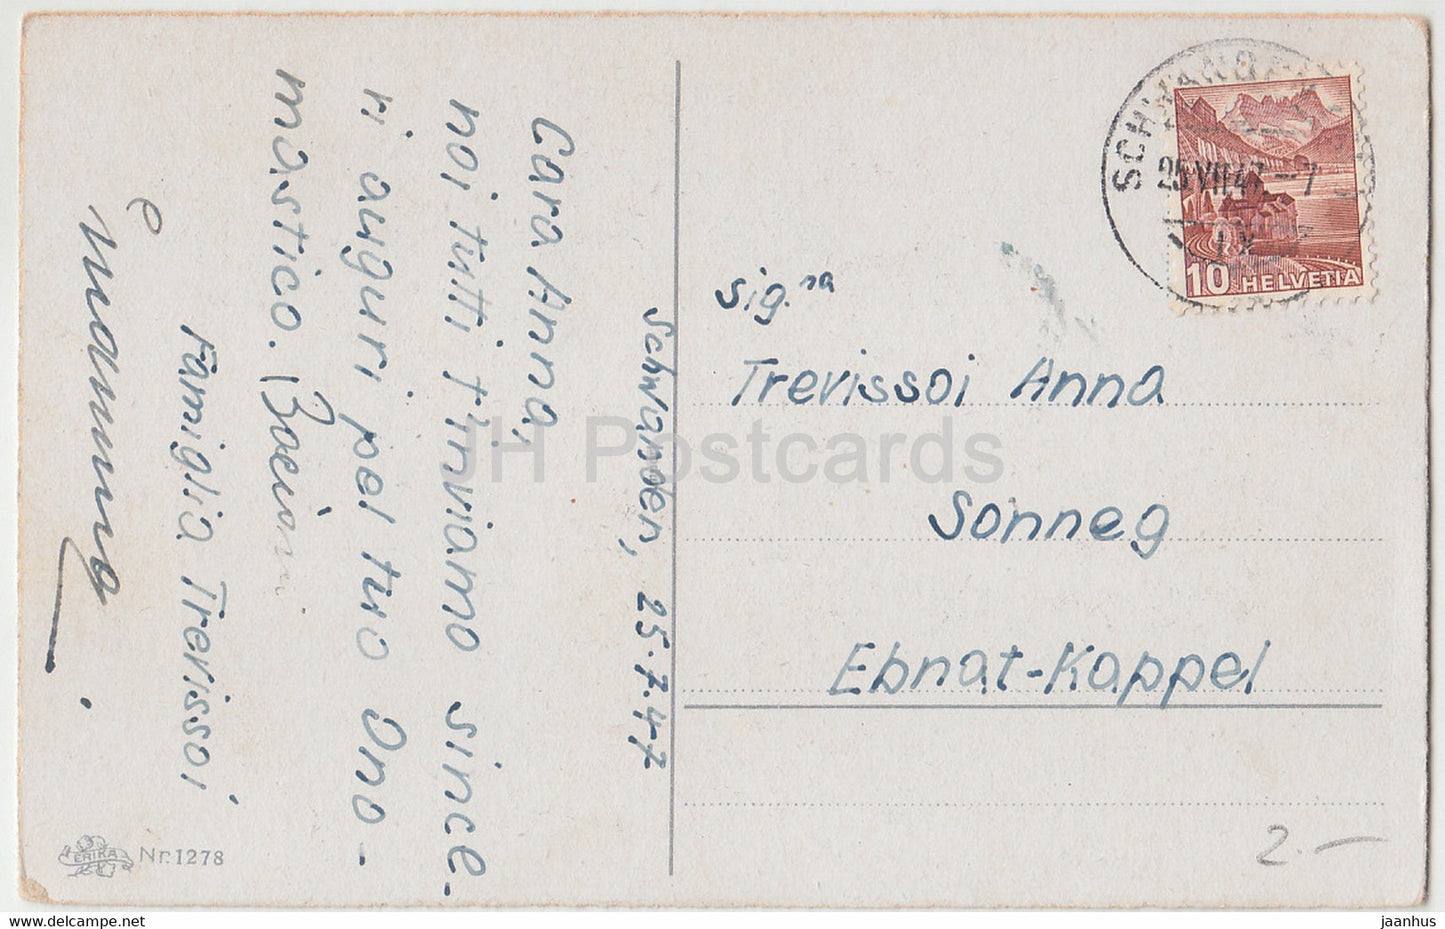 Schwanden, 25.7.47
Cara Anna,
noi tutti t'inviamo since-
ri auguri pel tuo Ono-
mastico. Bacioni
Famiglia Trevissoi
e mammà.
ERIKA Nr. 1278
SCHWANDEN
25.VII.47.-7
10 HELVETIA
sig.na
Trevissoi Anna
Sonneg
Ebnat-Kappel
2.-
JH Postcards
hippostcard.com/store/jaanhus